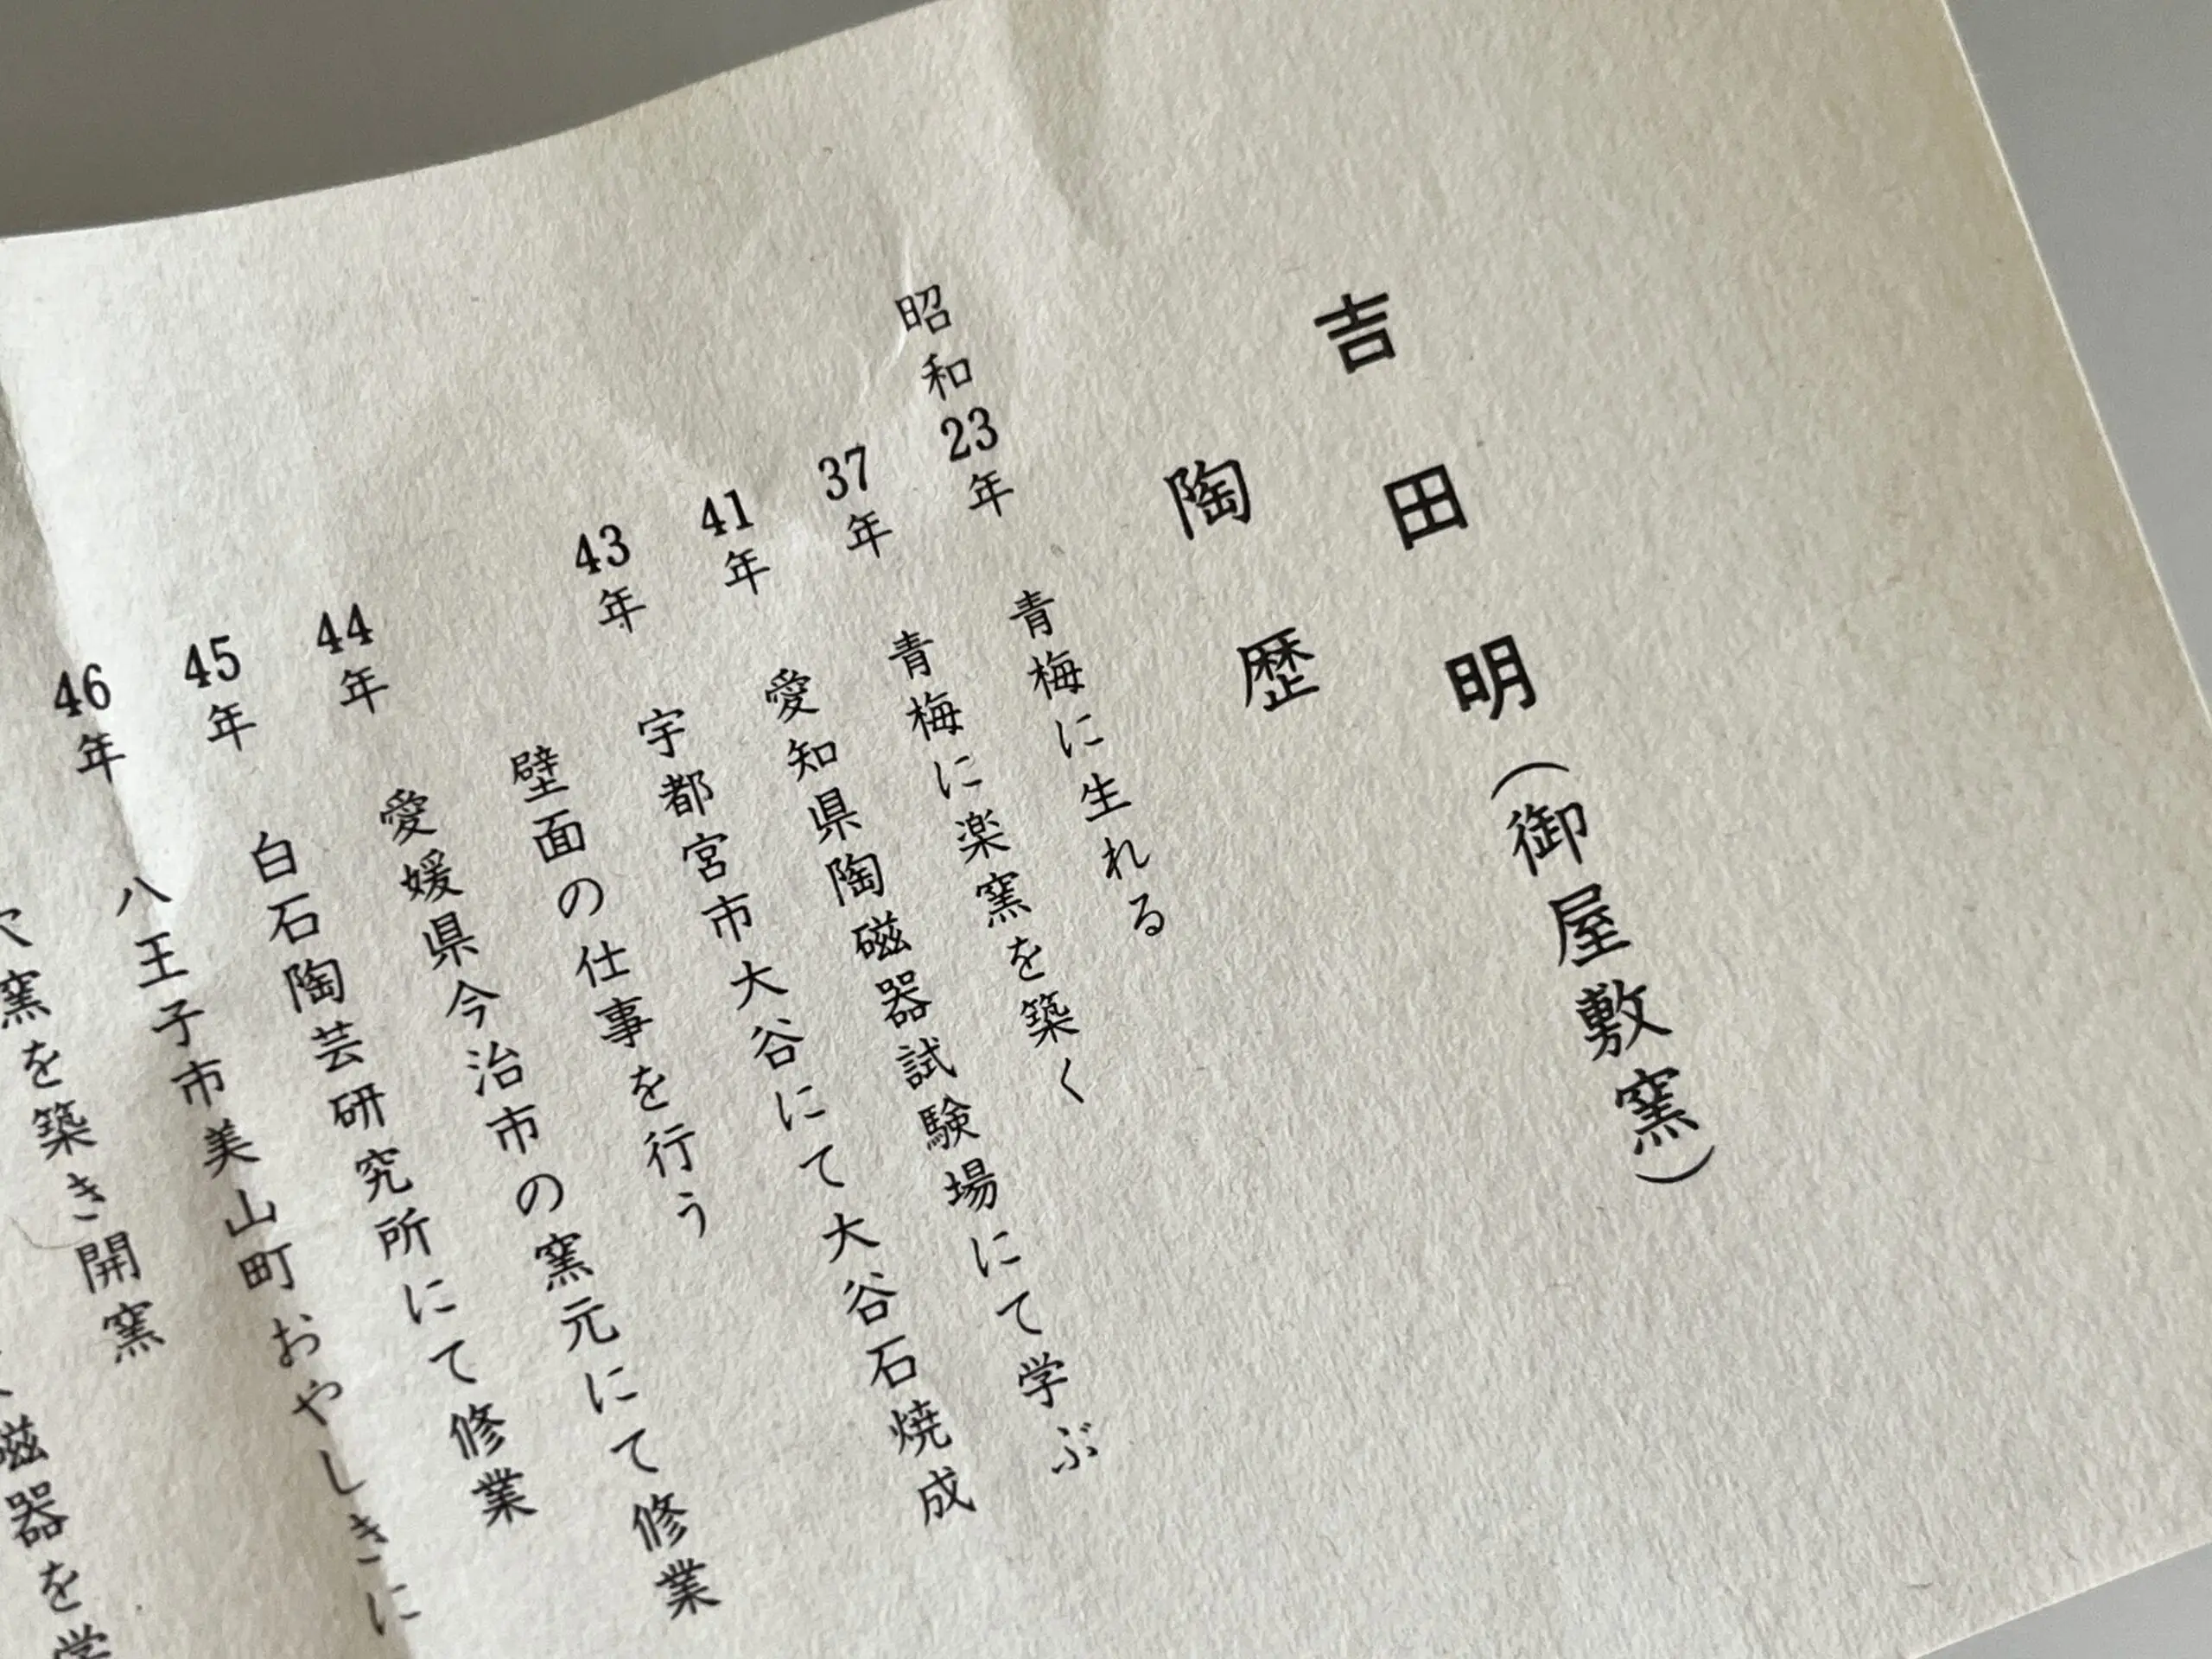 吉田明（御屋敷窯）
陶歴
昭和23年 青梅に生れる
37年 青梅に楽窯を築く
41年 愛知県陶磁器試験場にて学ぶ
43年 宇都宮市大谷にて大谷石焼成
壁面の仕事を行う
44年 愛媛県今治市の窯元にて修業
45年 白石陶芸研究所にて修業
46年 八王子市美山町おやしきに
穴窯を築き開窯
磁器を学